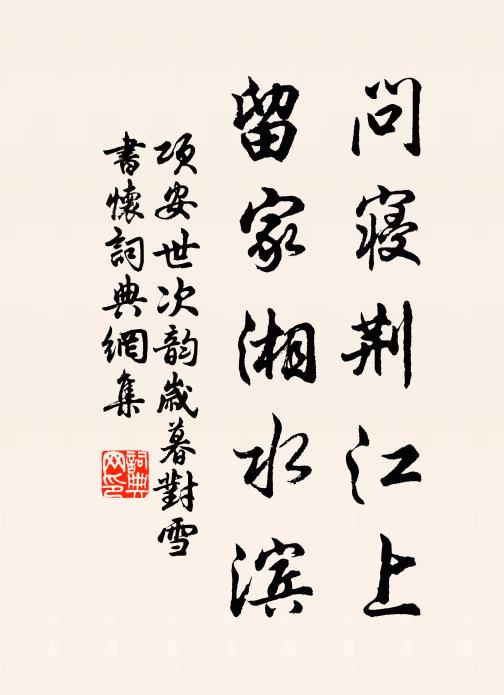 問寝荆江上
留家湘水滨
项安世次韵岁暮對雪
書懷詞典網集
詞典网印